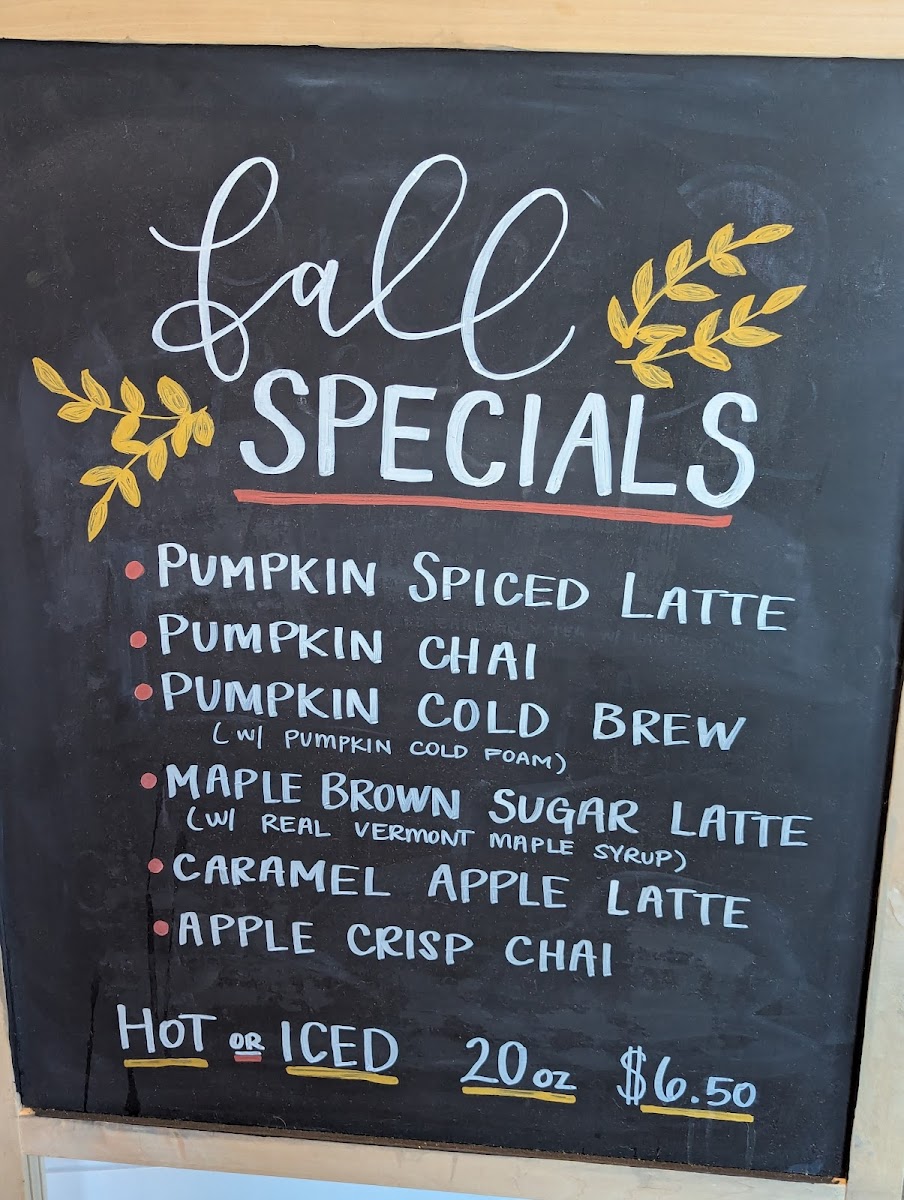 fall
SPECIALS
• PUMPKIN SPICED LATTE
• PUMPKIN CHAI
• PUMPKIN COLD BREW
(W/ PUMPKIN COLD FOAM)
• MAPLE BROWN SUGAR LATTE
(W/ REAL VERMONT MAPLE SYRUP)
• CARAMEL APPLE LATTE
• APPLE CRISP CHAI
HOT OR ICED 20 oz $6.50